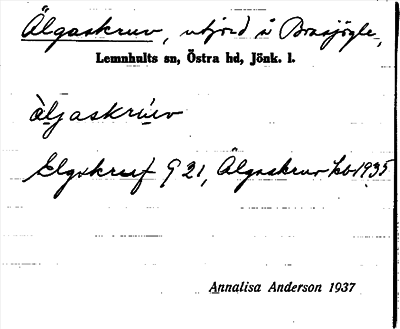 Älgaskruv, utjord å Brasjögle,
Lemnhults sn, Östra hd, Jönk. l.
àljaskrúv
Elgskruf G 21, Älgaskruv kb 1935
Annalisa Anderson 1937